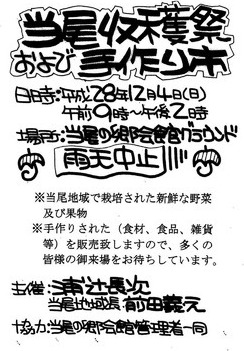 当尾収穫祭
および手作り市
日時:平成28年12月4日(日)
午前9時〜午後2時
場所:当尾の郷会館グラウンド
雨天中止
※当尾地域で栽培された新鮮な野菜
及び果物
※手作りされた(食材、食品、雑貨
等)を販売致しますので、多くの
皆様の御来場をお待ちしています。
主催:浦辻長次
当尾地域長:前田義元
協力:当尾の郷会館管理者一同